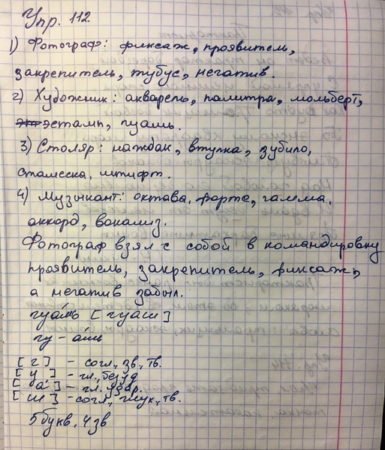 Упр. 112
1) Фотограф: фиксаж, проявитель,
закрепитель, тубус, негатив.
2) Художник: акварель, палитра, мольберт,
эстамп, гуашь.
3) Столяр: наждак, втулка, зубило,
стамеска, штифт.
4) Музыкант: октава, форте, гамма,
аккорд, вокализ.
Фотограф взял с собой в командировку
проявитель, закрепитель, фиксаж,
а негатив забыл.
гуашь [гуаш]
гу-ашь
[г] - согл., зв., тв.
[у] - гл., безуд.
[а́] - гл. удар.
[ш] - согл., глух., тв.
5 букв, 4 зв